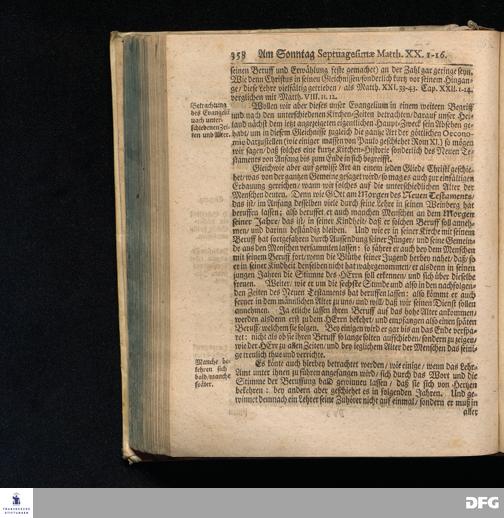 358 Am Sonntag Septuagesimæ Matth. XX. 1-16.
seinen Beruff und Erwählung feste gemachet) an der Zahl gar geringe seyn.
Wie denn Christus in seinen Gleichnissen/sonderlich kurtz vor seinem Hingan-
ge/ diese Lehre vielfältig getrieben/ als Matth. XXI. 33-43. Cap. XXII. 1-14.
verglichen mit Matth. VIII. 11. 12.
Betrachtung
des Evangelii
nach unter-
schiedenen Zei-
ten und Alter.
Wollen wir aber dieses unser Evangelium in einem weitern Begriff
und nach den unterschiedenen Kirchen-Zeiten betrachten/ darauf unser Hei-
land nächst dem jetzt angezeigten eigentlichen Haupt-Zweck sein Absehen ge-
habt/ um in diesem Gleichnisse zugleich die gantze Art der göttlichen Oecono-
mie darzustellen (wie einiger massen von Paulo geschiehet Rom XI.) so mögen
wir sagen/ daß solches eine kurtze Kirchen-Historie sonderlich des Neuen Te-
staments von Anfang bis zum Ende in sich begreifft.
Gleichwie aber auf gewisse Art an einem jeden Gliede Christi geschie-
het/ was von der gantzen Gemeine gesaget wird/ so mag es auch zur einfältigen
Erbauung gereichen/ wann wir solches auf die unterschiedlichen Alter der
Menschen deuten. Denn wie GOtt am Morgen des Neuen Testaments/
das ist/ im Anfang desselben viele durch seine Lehre in seinen Weinberg hat
beruffen lassen; also beruffet er auch manchen Menschen an dem Morgen
seiner Jahre/ das ist/ in seiner Kindheit/ daß er solchen Beruff soll anneh-
men/ und darinn beständig bleiben. Und wie er in seiner Kirche mit seinem
Beruff hat fortgefahren durch Aussendung seiner Jünger/ und seine Gemein-
de aus den Menschen versammlen lassen: so fähret er auch bey dem Menschen
mit seinem Beruff fort/ wenn die Blüthe seiner Jugend herbey nahet/ daß/ so
er in seiner Kindheit denselben nicht hat wahrgenommen/ er alsdenn in seinen
jungen Jahren die Stimme des HErrn soll erkennen/ und sich über dieselbe
freuen. Weiter/ wie er um die sechste Stunde und also in den nachfolgen-
den Zeiten des Neuen Testaments hat beruffen lassen: also kömmt er auch
ferner in dem männlichen Alter zu uns/ und will/ daß wir seinen Dienst sollen
annehmen. Ja etliche lassen ihren Beruff auf das hohe Alter ankommen/
werden alsdenn erst zu dem HErrn bekehrt/ und empfangen also einen späten
Beruff/ welchem sie folgen. Bey einigen wird er gar bis an das Ende verspa-
ret: nicht als ob sie ihren Beruff so lange solten aufschieben/ sondern zu zeigen/
wie der HErr zu allen Zeiten/ und bey jeglichem Alter der Menschen das seini-
ge treulich thue und verrichte.
Manche be-
kehren sich
bald/manche
später.
Es könte auch hierbey betrachtet werden/ wie einige/ wenn das Lehr-
Amt unter ihnen zu führen angefangen wird/ sich durch das Wort und die
Stimme der Beruffung bald gewinnen lassen/ daß sie sich von Hertzen
bekehren: bey andern aber geschiehet es in folgenden Jahren. Und ge-
winnet demnach ein Lehrer seine Zuhörer nicht auf einmal/ sondern er muß in
aller
FRANCKESCHE
STIFTUNGEN
DFG